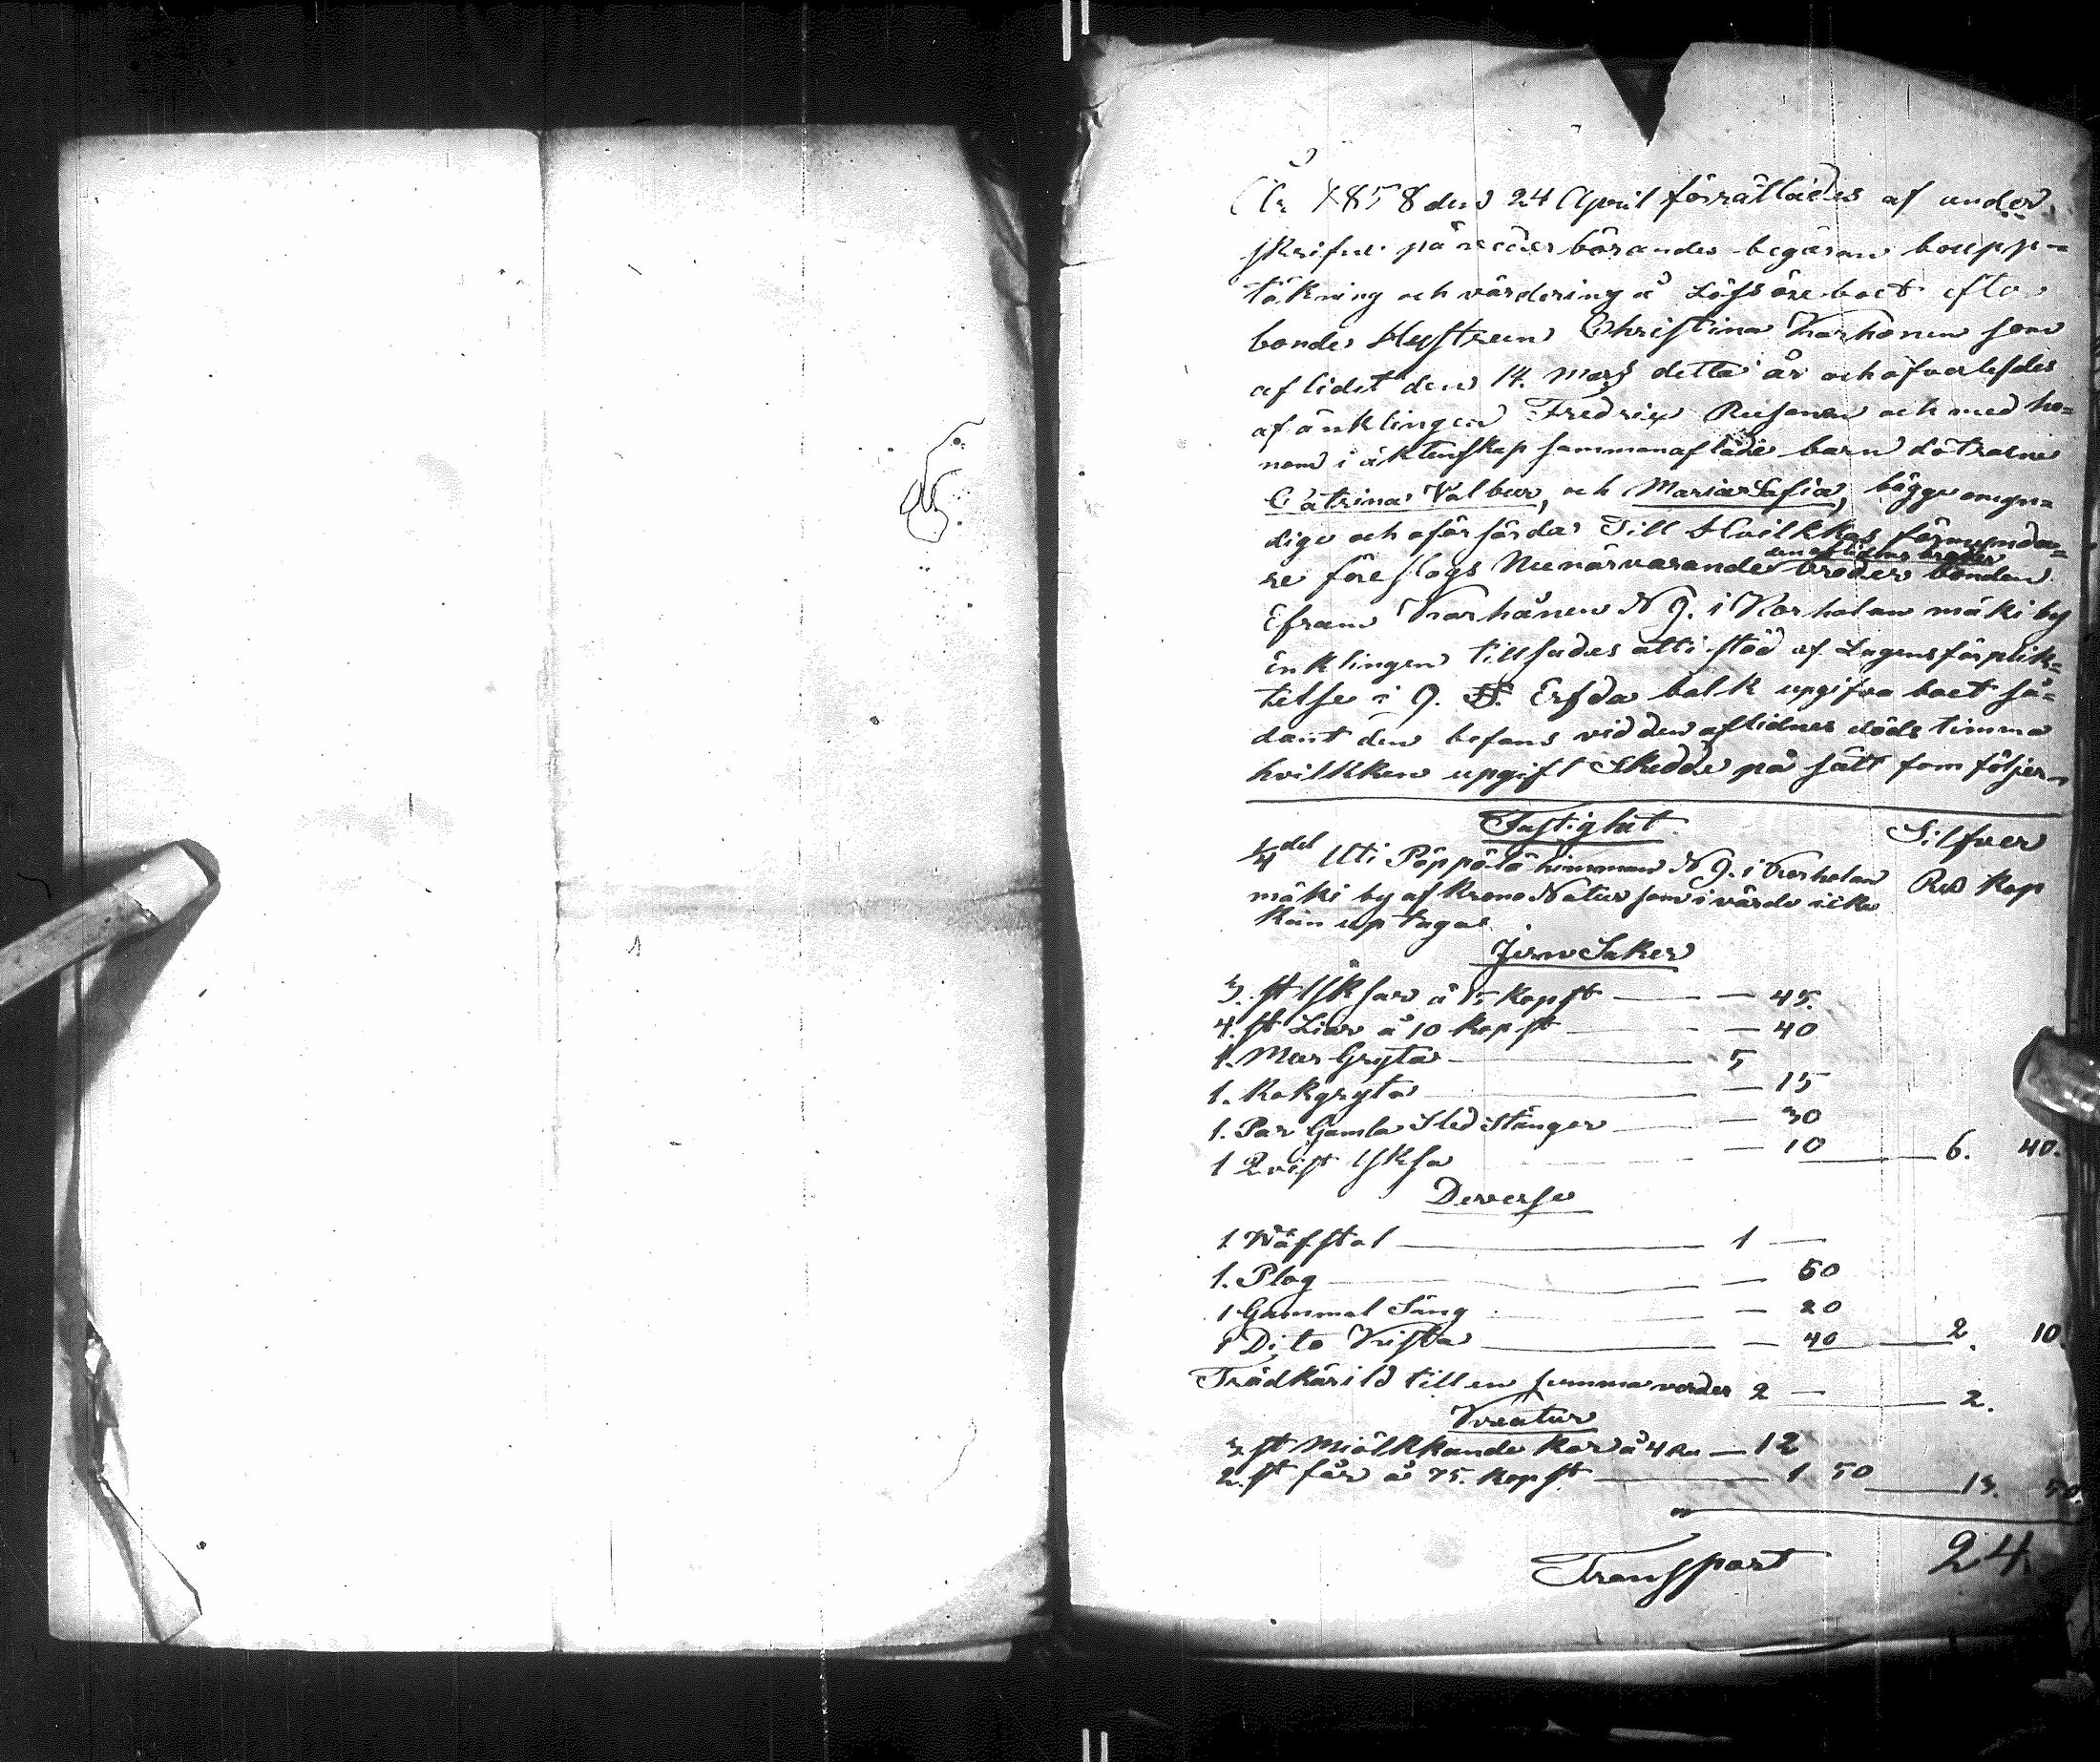 År 1858 den 24 April förrättades af under
skrifne på vederbörandes begäran boupp=
täkning och värdering å Löfsöreboet efter
bonde Hustrun Christina Korhonen som
aflidet den 14. Mars detta år och öfverlefdes
af änklingen Fredrix Rusanen och med ho=
nom i äktenskap sammanaflade barn dötrarne
Catrina Valbur, och Maria Safia, bägge omyn=
dige och oförsörda Till Hvilkkas förmynda=
den aflidnes broder
re föreslogs Nu närvarande broder bonden
Efraim Korhånen N 9. i Korholanmäki by
änklingen tillsades att i stöd af Lagens förplik=
telse i 9. Erfda balk upgifva boet så=
dant den befans vid den aflidnes döds timma
hvilkken upgift Skedde på sätt som följer
Fastighet Silfver
1/4 del Uti Pöppölä himman N 9. i Korholan Rub Kop
mäki by af Krono Natur som i värde icke
kan up tagas
Jern Saker
3. st Yksar á 15 Kop st — — 45.
4. st Liar á 10 Kop st — — 40
1. Mur Gryta — 5
1. Kokgryta — — 15
1. Par Gamla Sled Stänger — — 30
1 Qvist Yksa — 10 — 6. 40.
Diverse
1 Wäfstol — 1 —
1. Plog — — 50
1 Gammal Säng — 20
1 Dito Kista — — 40 — 2. 10.
Trädkärild till en summa värder 2 — — 2.
Kreatur
3 st Miölkkande Kor á 4 Ru — 12
2. st får á 75. Kop st — 1 50 — 13. 50.
Transport 24